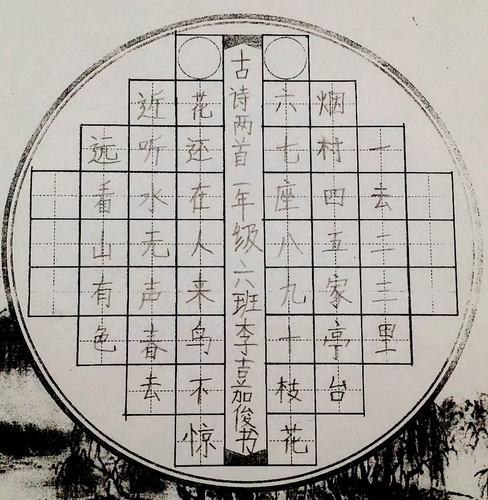 一去二三里
烟村四五家亭台
六七座八九十枝花
古诗两首一年级六班李嘉俊书
花还在人来鸟不惊
近听水无声春去
远看山有色